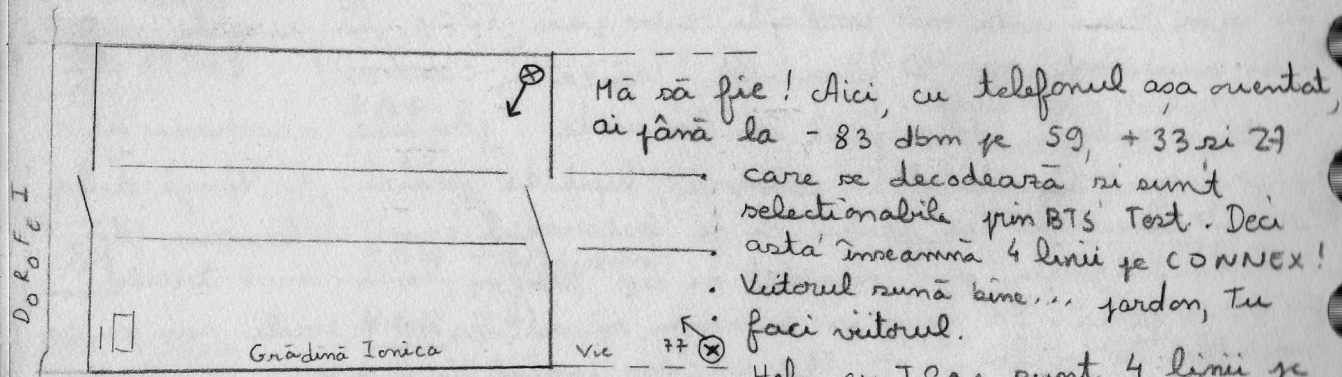 DOROFEI
Mă să fie! Aici, cu telefonul așa orientat,
ai până la - 83 dbm pe 59, + 33 si 27
care se decodează si sunt
selectionabile prin BTS Test. Deci
asta înseamnă 4 linii pe CONNEX!
Viitorul sună bine... pardon, Tu
faci viitorul.
Grădină Ionica
Vie
77
4 linii pe